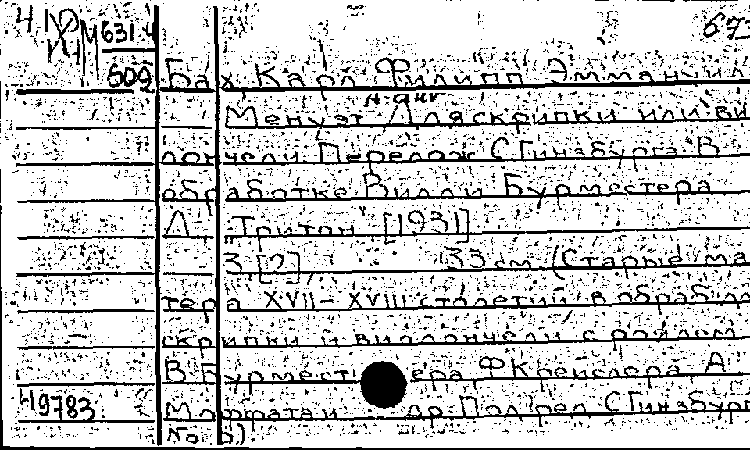 М631.4
67
609 Бах, Карл Филипп Эммануил
Менуэт Для скрипки или ви
лончели Перелож С Гинзбурга В
обработке Вилли Бурместера
Л "Тритон" [1931]
3 [2] 33 см (Старые ма
тера XVII–XVIII столетий в обраб для
скрипки и виолончели с роялем
В Бурместера ФКрейслера, А
49783 Моффата и др. Под ред С Гинзбург
№ 5)